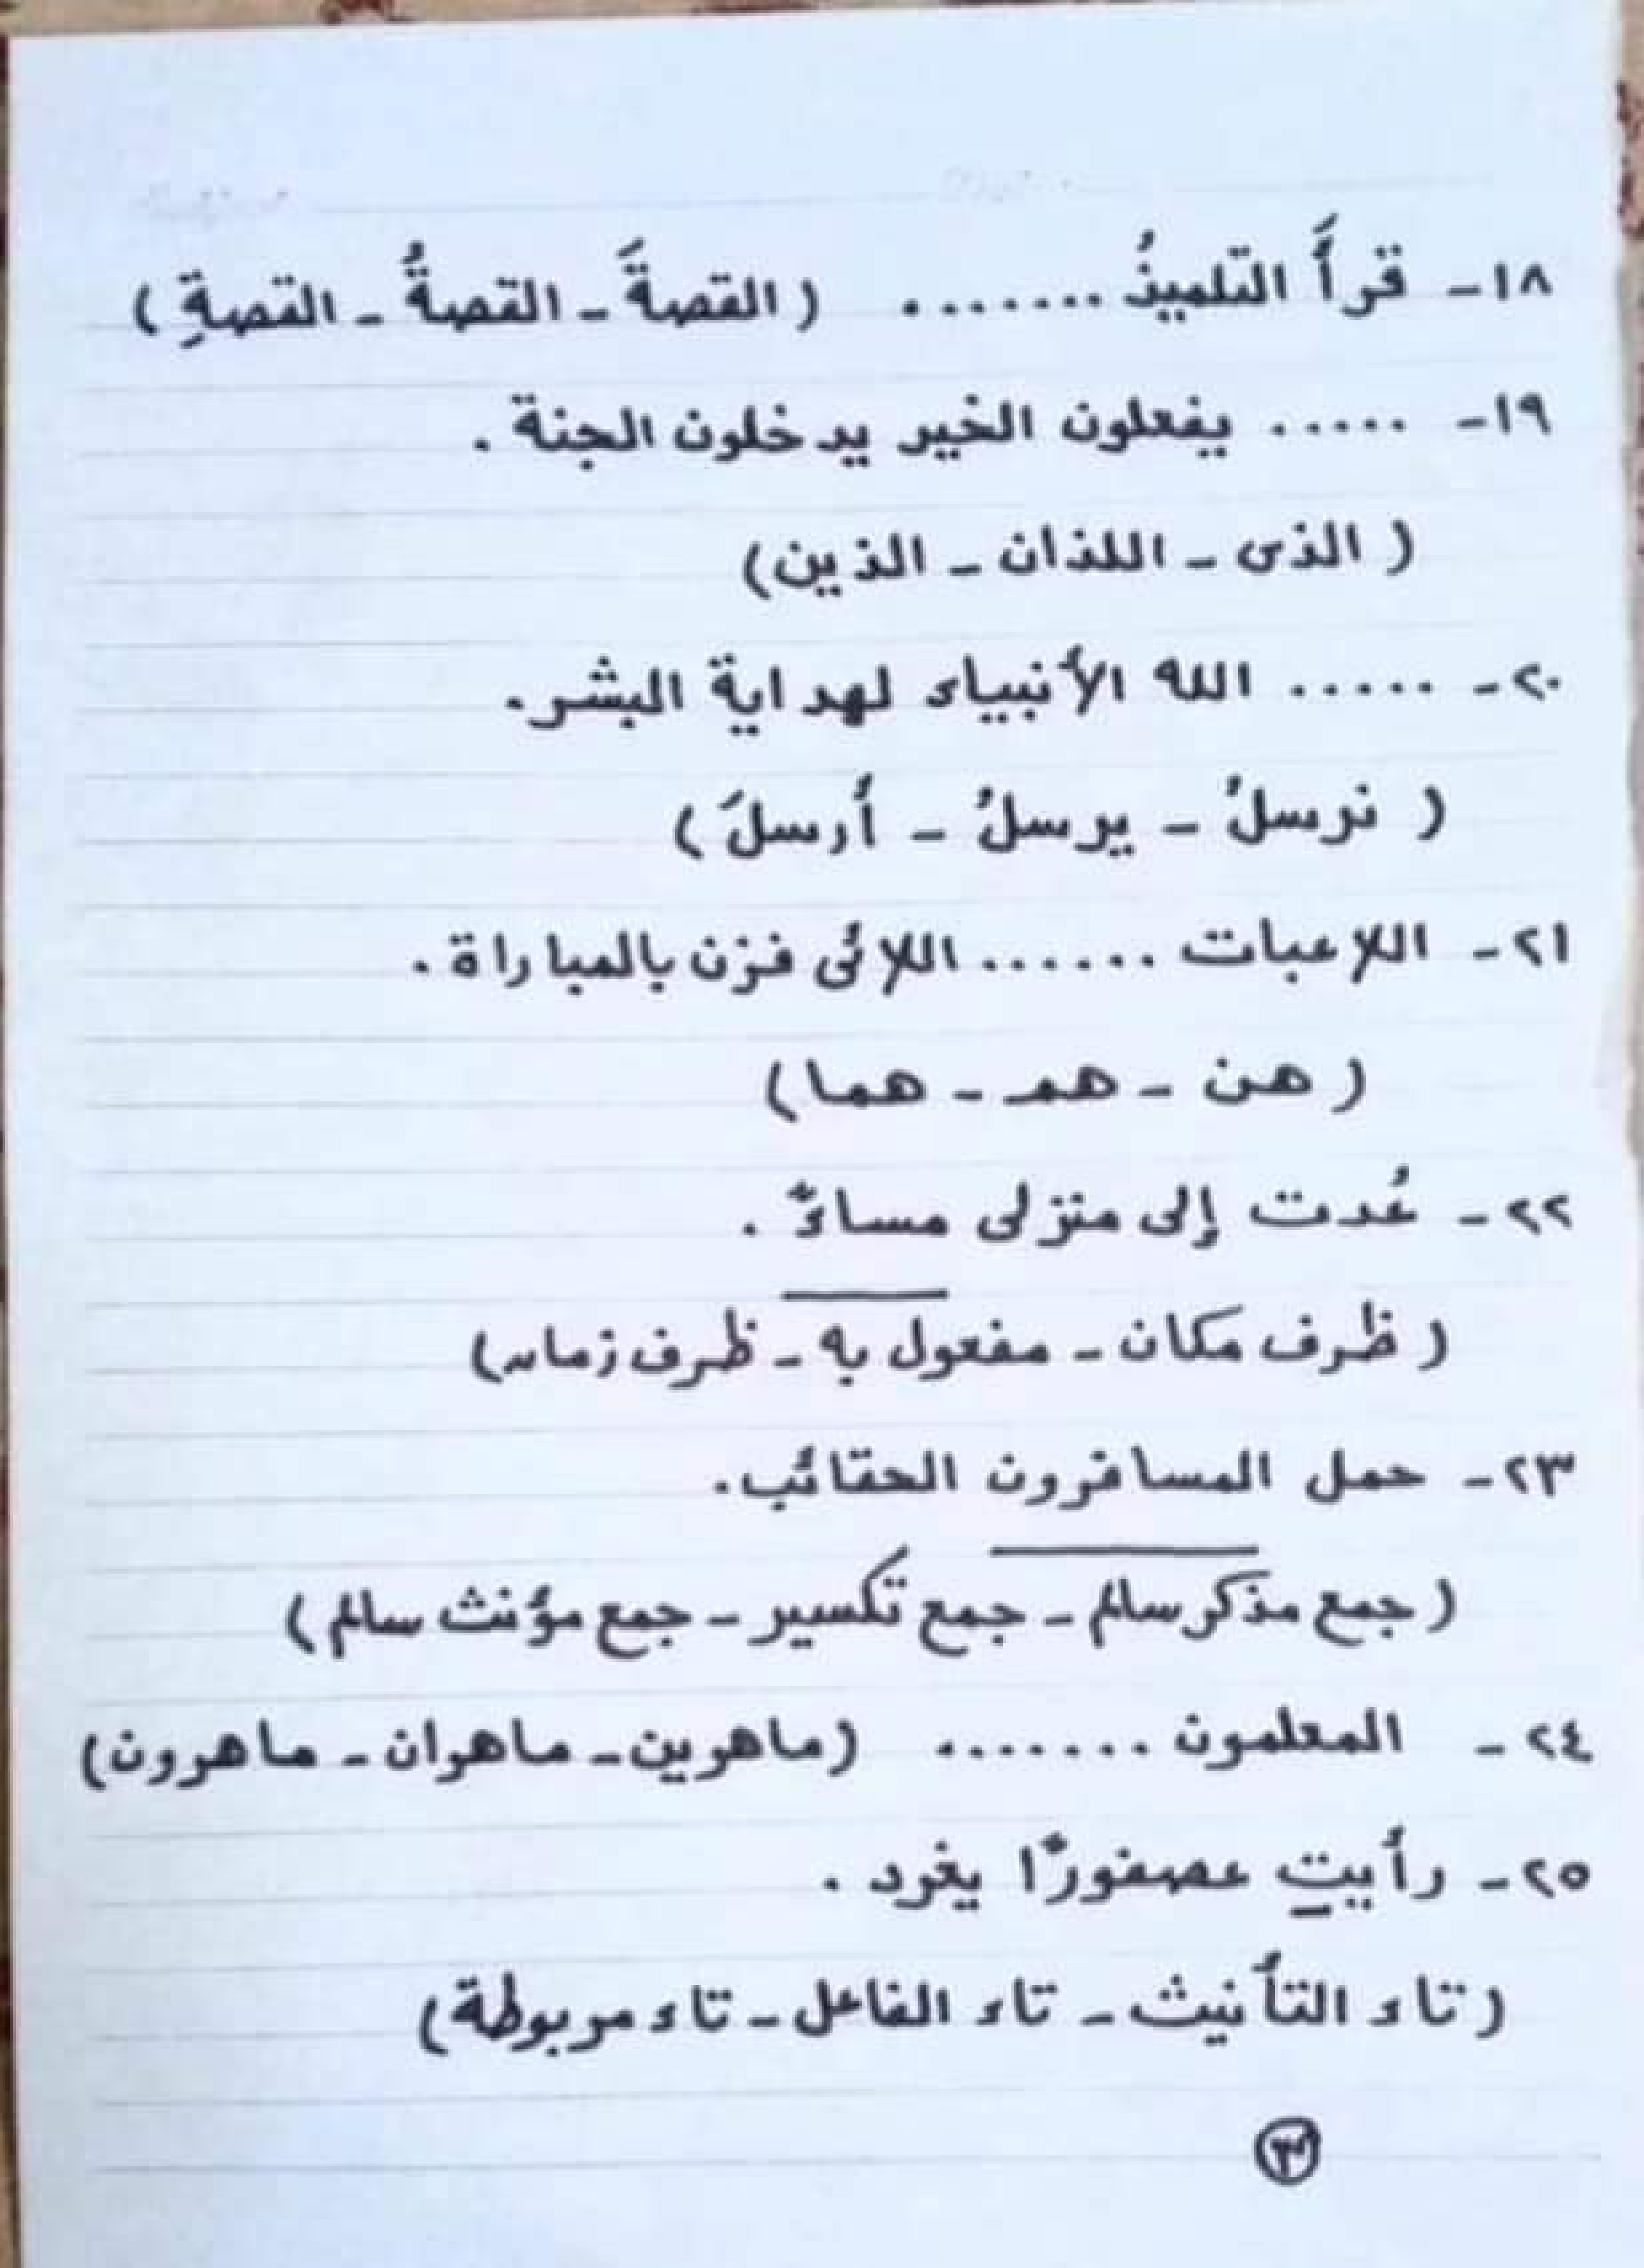 ١٨- قرأَ التلميذُ ....... (القصةَ - القصةُ - القصةِ)
١٩- ..... يفعلون الخير يدخلون الجنة .
(الذى - اللذان - الذين)
٢٠- ..... الله الأنبياء لهداية البشر.
(نرسلُ - يرسلُ - أرسلَ)
٢١- اللاعبات ...... اللائى فزن بالمباراة .
(هن - هم - هما)
٢٢- عُدت إلى منزلى مساءً .
(ظرف مكان - مفعول به - ظرف زمان)
٢٣- حمل المسافرون الحقائب.
(جمع مذكر سالم - جمع تكسير - جمع مؤنث سالم)
٢٤- المعلمون ....... (ماهرين - ماهران - ماهرون)
٢٥- رأيتِ عصفورًا يغرد .
(تاء التأنيث - تاء الفاعل - تاء مربوطة)
٣